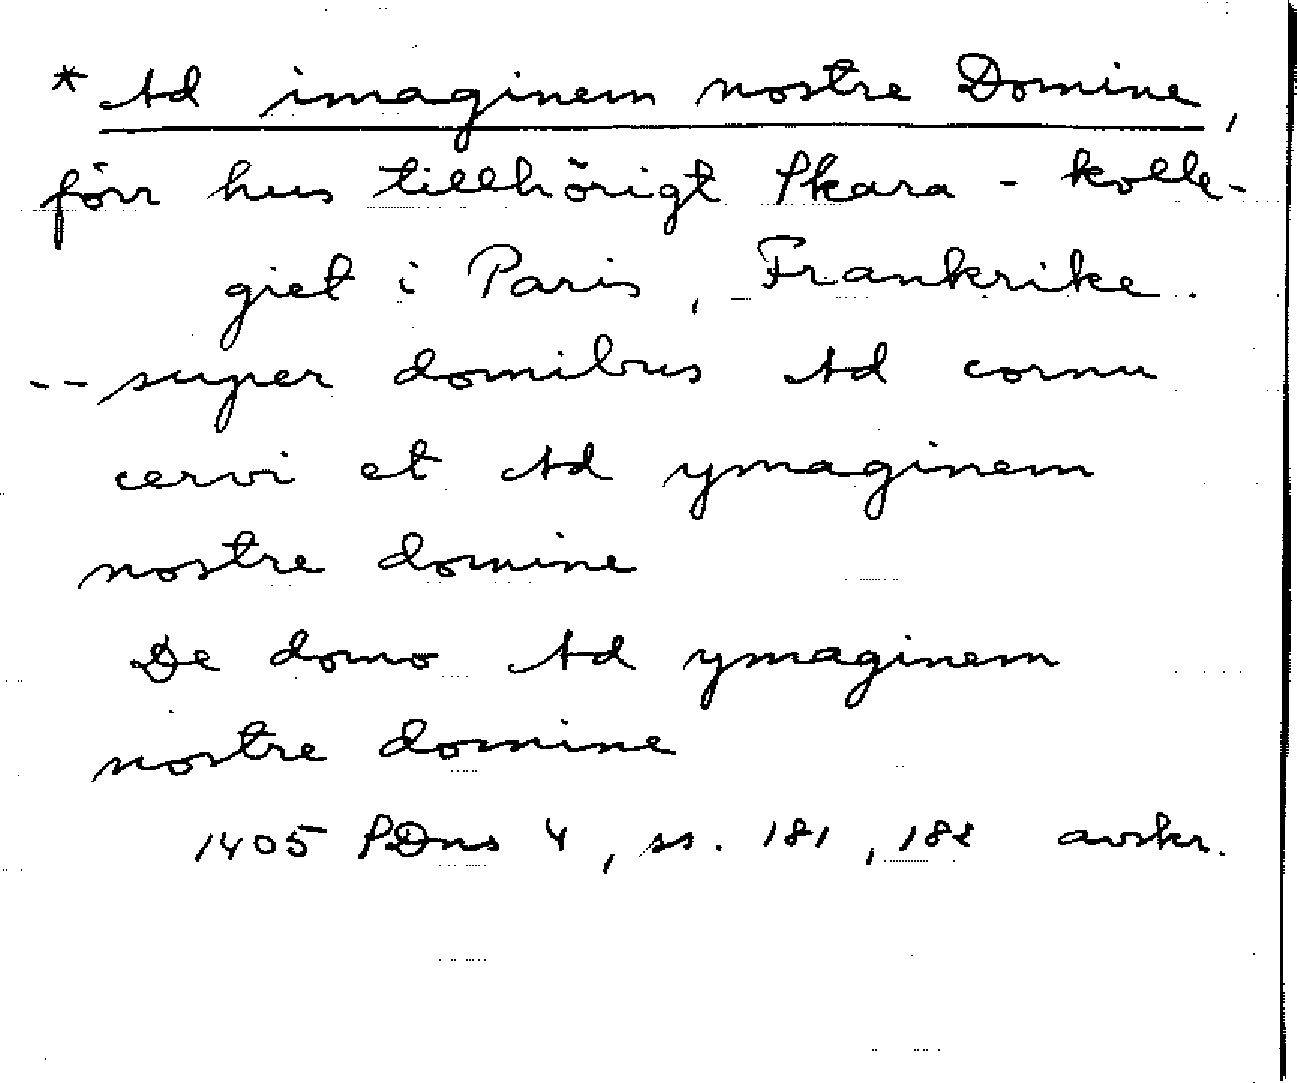 * Ad imaginem nostre Domine,
förr hus tillhörigt Skara-kolle-
giet i Paris, Frankrike.
-- super domibus Ad cornu
cervi et Ad ymaginem
nostre domine
De domo Ad ymaginem
nostre domine
1405 SDns 4, ss. 181, 182 avskr.